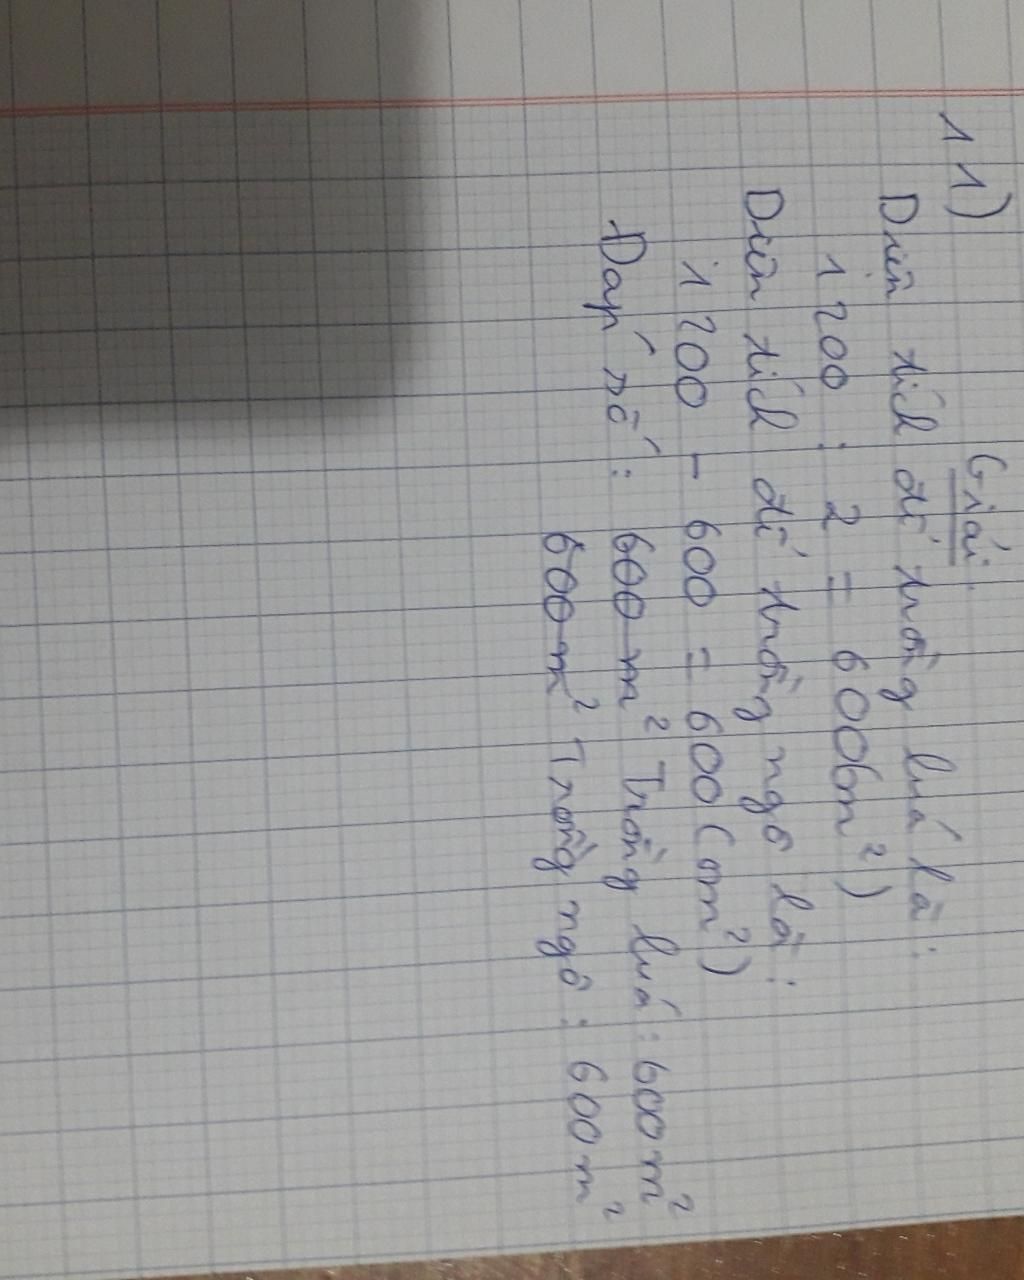 11)
Giải
Diện tích để trồng lúa là:
1200 : 2 = 600(m²)
Diện tích để trồng ngô là:
1200 - 600 = 600 (m²)
Đáp số: 600 m² Trồng lúa: 600 m²
600 m² Trồng ngô: 600 m²